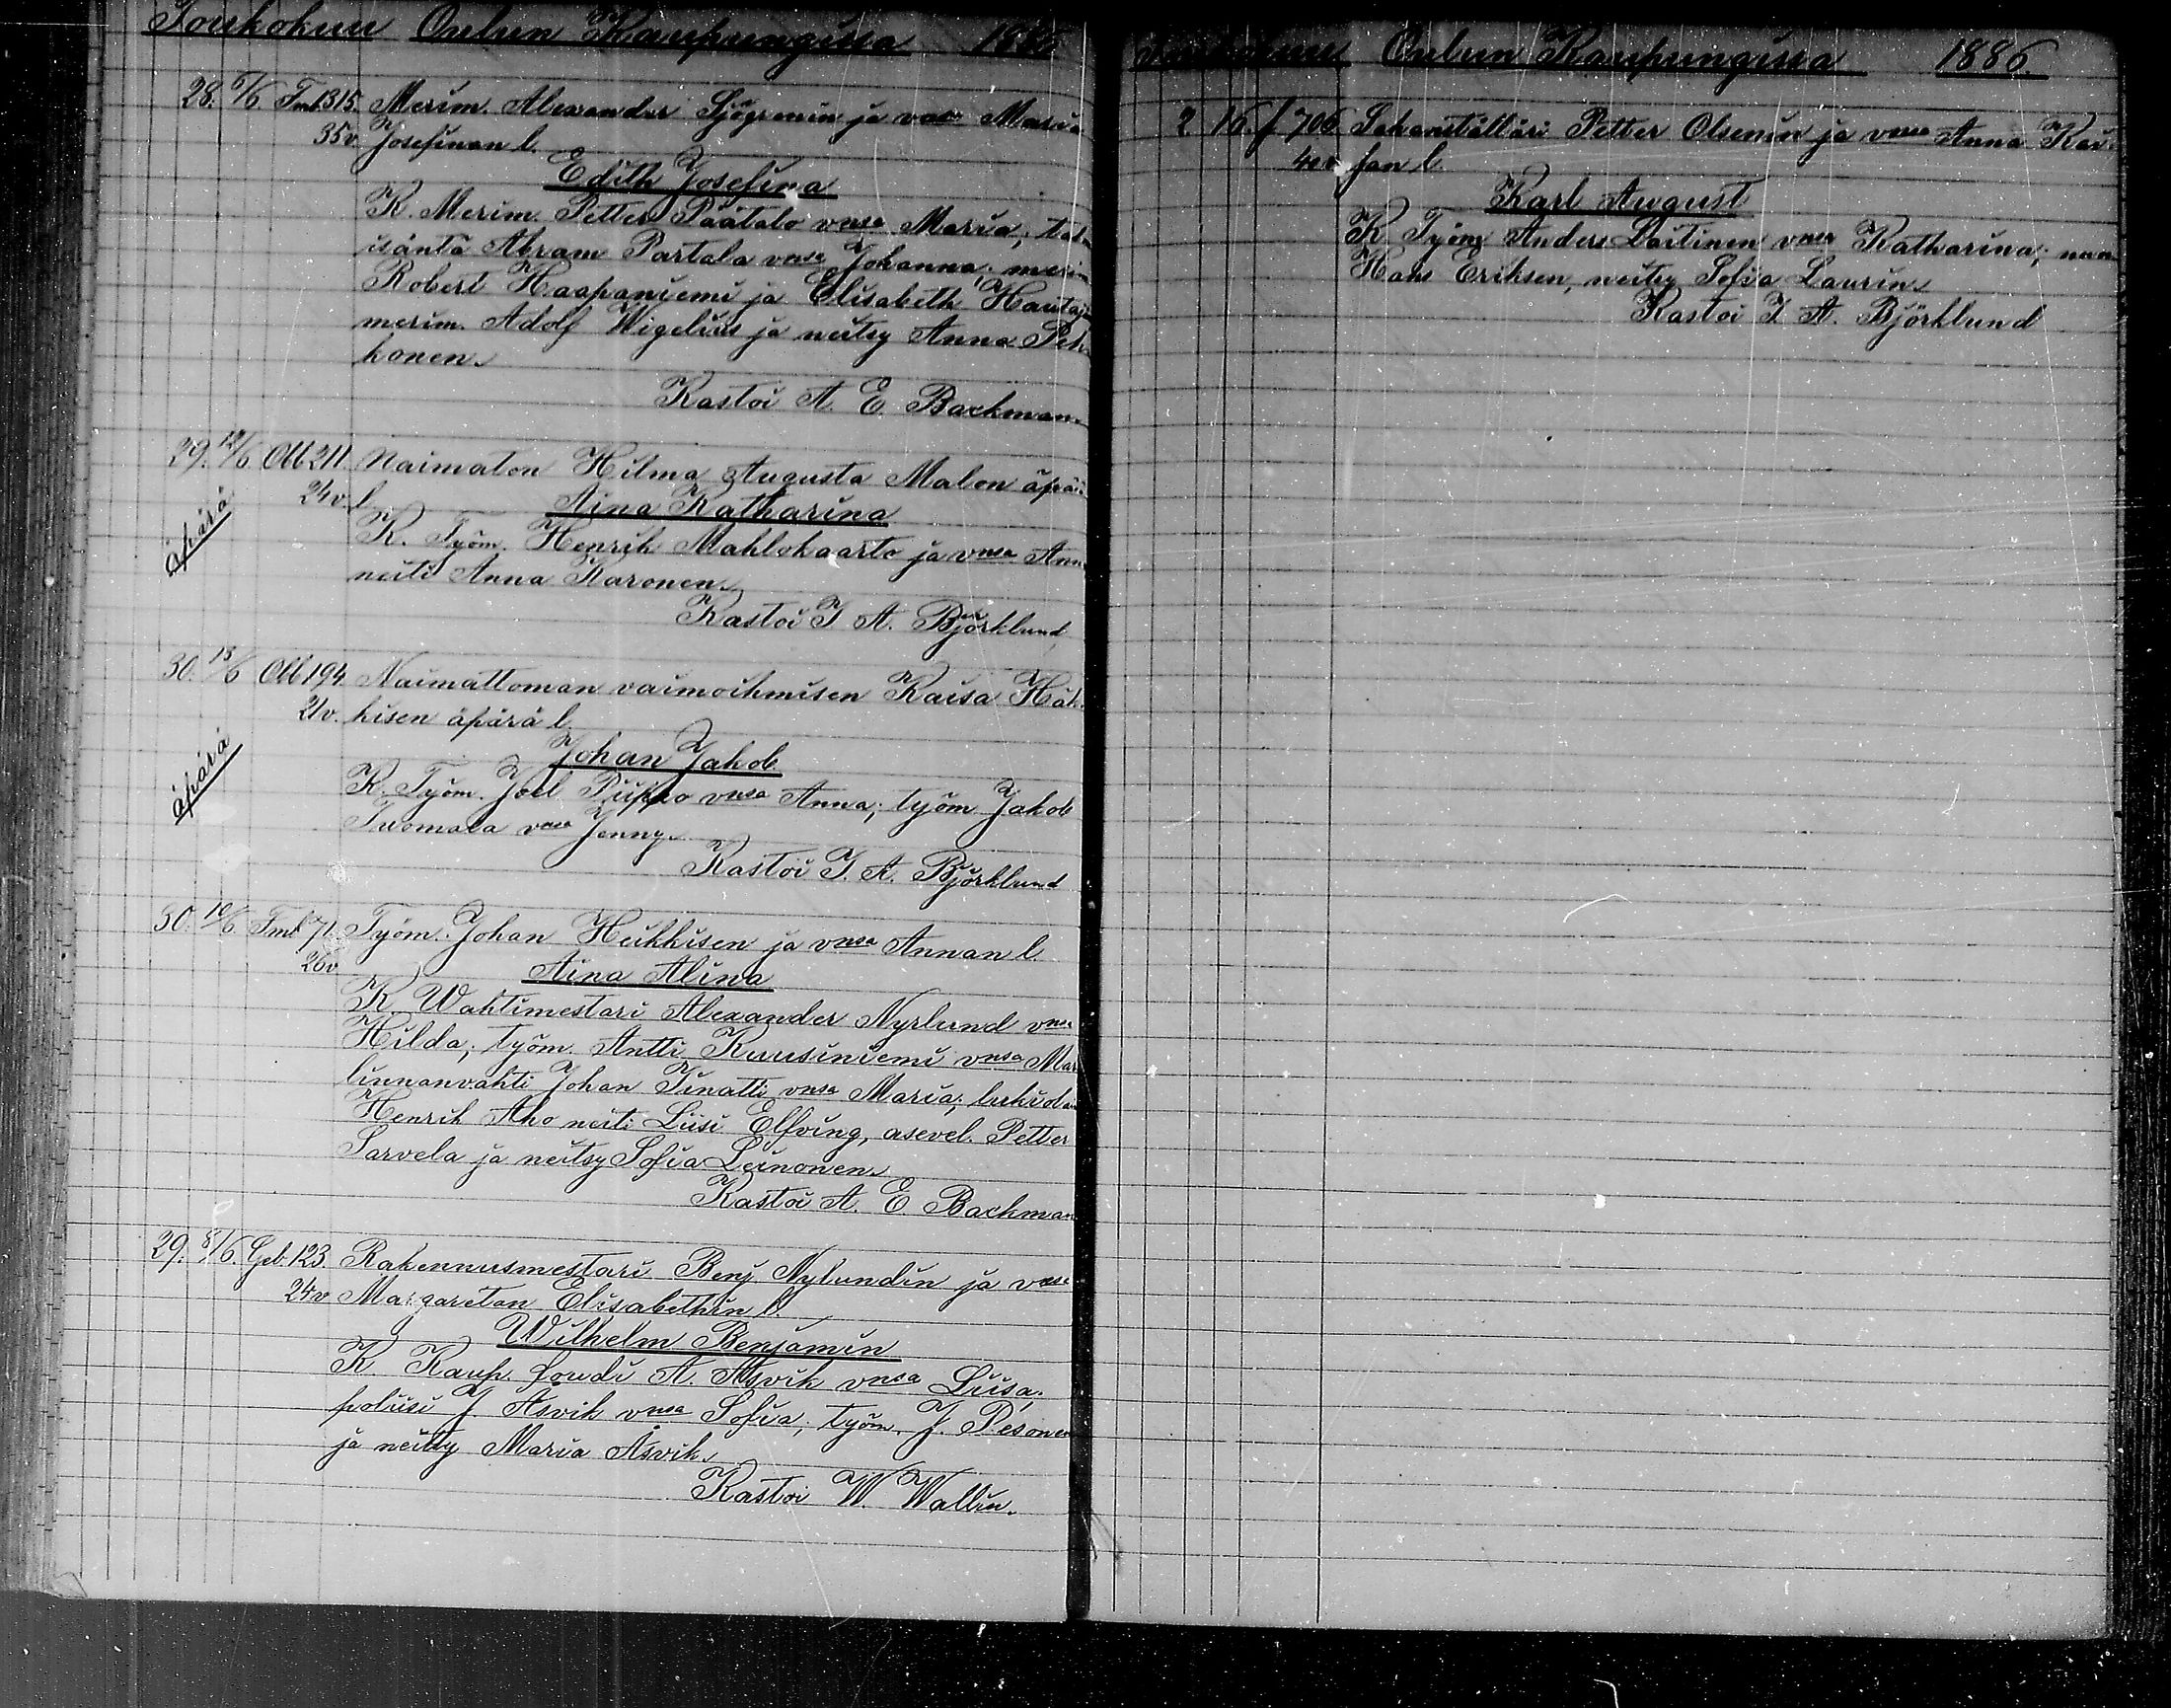 Toukokuu Oulun Kaupungissa 1886
28. 6/6 Fml 315. Merim. Alexander Sjögrenin ja vmsa Maria
35 v. Josefinan l.
Edith Josefina
K. Merim. Petter Päätalo vmsa Maria; tal.
isäntä Abram Partala vmsa Johanna; merim
Robert Haapaniemi ja Elisabeth Hautaj
merim. Adolf Wigelius ja neitsy Anna Peh
konen.
Kastoi A. E. Backman.
29. 12/6 Obb 211. Naimaton Hilma Augusta Malen äpärä
24 v. l.
äpärä
Aina Katharina
K. Työm. Henrik Mahlokaarto ja vmsa Ann
neiti Anna Karonen.
Kastoi J. A. Björklund
30. 13/6 Obb 194. Naimattoman vaimoihmisen Kaisa Häk
21 v. kisen äpärä l.
äpärä
Johan Jakob
K. Työm. Joel Piippo vmsa Anna; työm. Jakob
Tuomala vmsa Jenny.
Kastoi J. A. Björklund
30. 10/6 Fml 71. Työm. Johan Heikkisen ja vmsa Annan l.
26 v
Aina Alina
K. Wahtimestari Alexander Nyrlund vmsa
Hilda; työm. Antti Kuusiniemi vmsa Mar
linnanvahti Johan Tinatti vmsa Maria;
Henrik Aho neiti Liisi Elfving, asevel. Petter
Sarvela ja neitsy Sofia Leinonen.
Kastoi A. E. Backman
29. 8/6. Geb. 123. Rakennusmestari Benj. Nylundin ja vmsa
24 v Margaretan Elisabethin l.
Wilhelm Benjamin
K. Kaup. foudi A. Åsvik vmsa Liisa;
poliisi J. Åsvik vmsa Sofia; työm. J. Pesonen
ja neitsy Maria Åsvik.
Kastoi W. Wallin.
Oulun Kaupungissa 1886.
2 16 f 706 Sahanställäri Petter Olsenin ja vmsa Anna Kai
40 v san l.
Karl August
K Työm Anders Laitinen vmsa Katharina;
Hans Eriksen, neitsy Sofia Laurin.
Kastoi J. A. Björklund